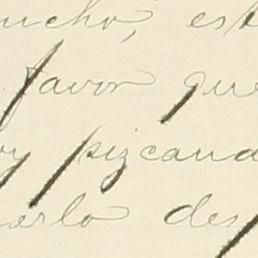 ucho, est
favor que
y pizcand
erlo des